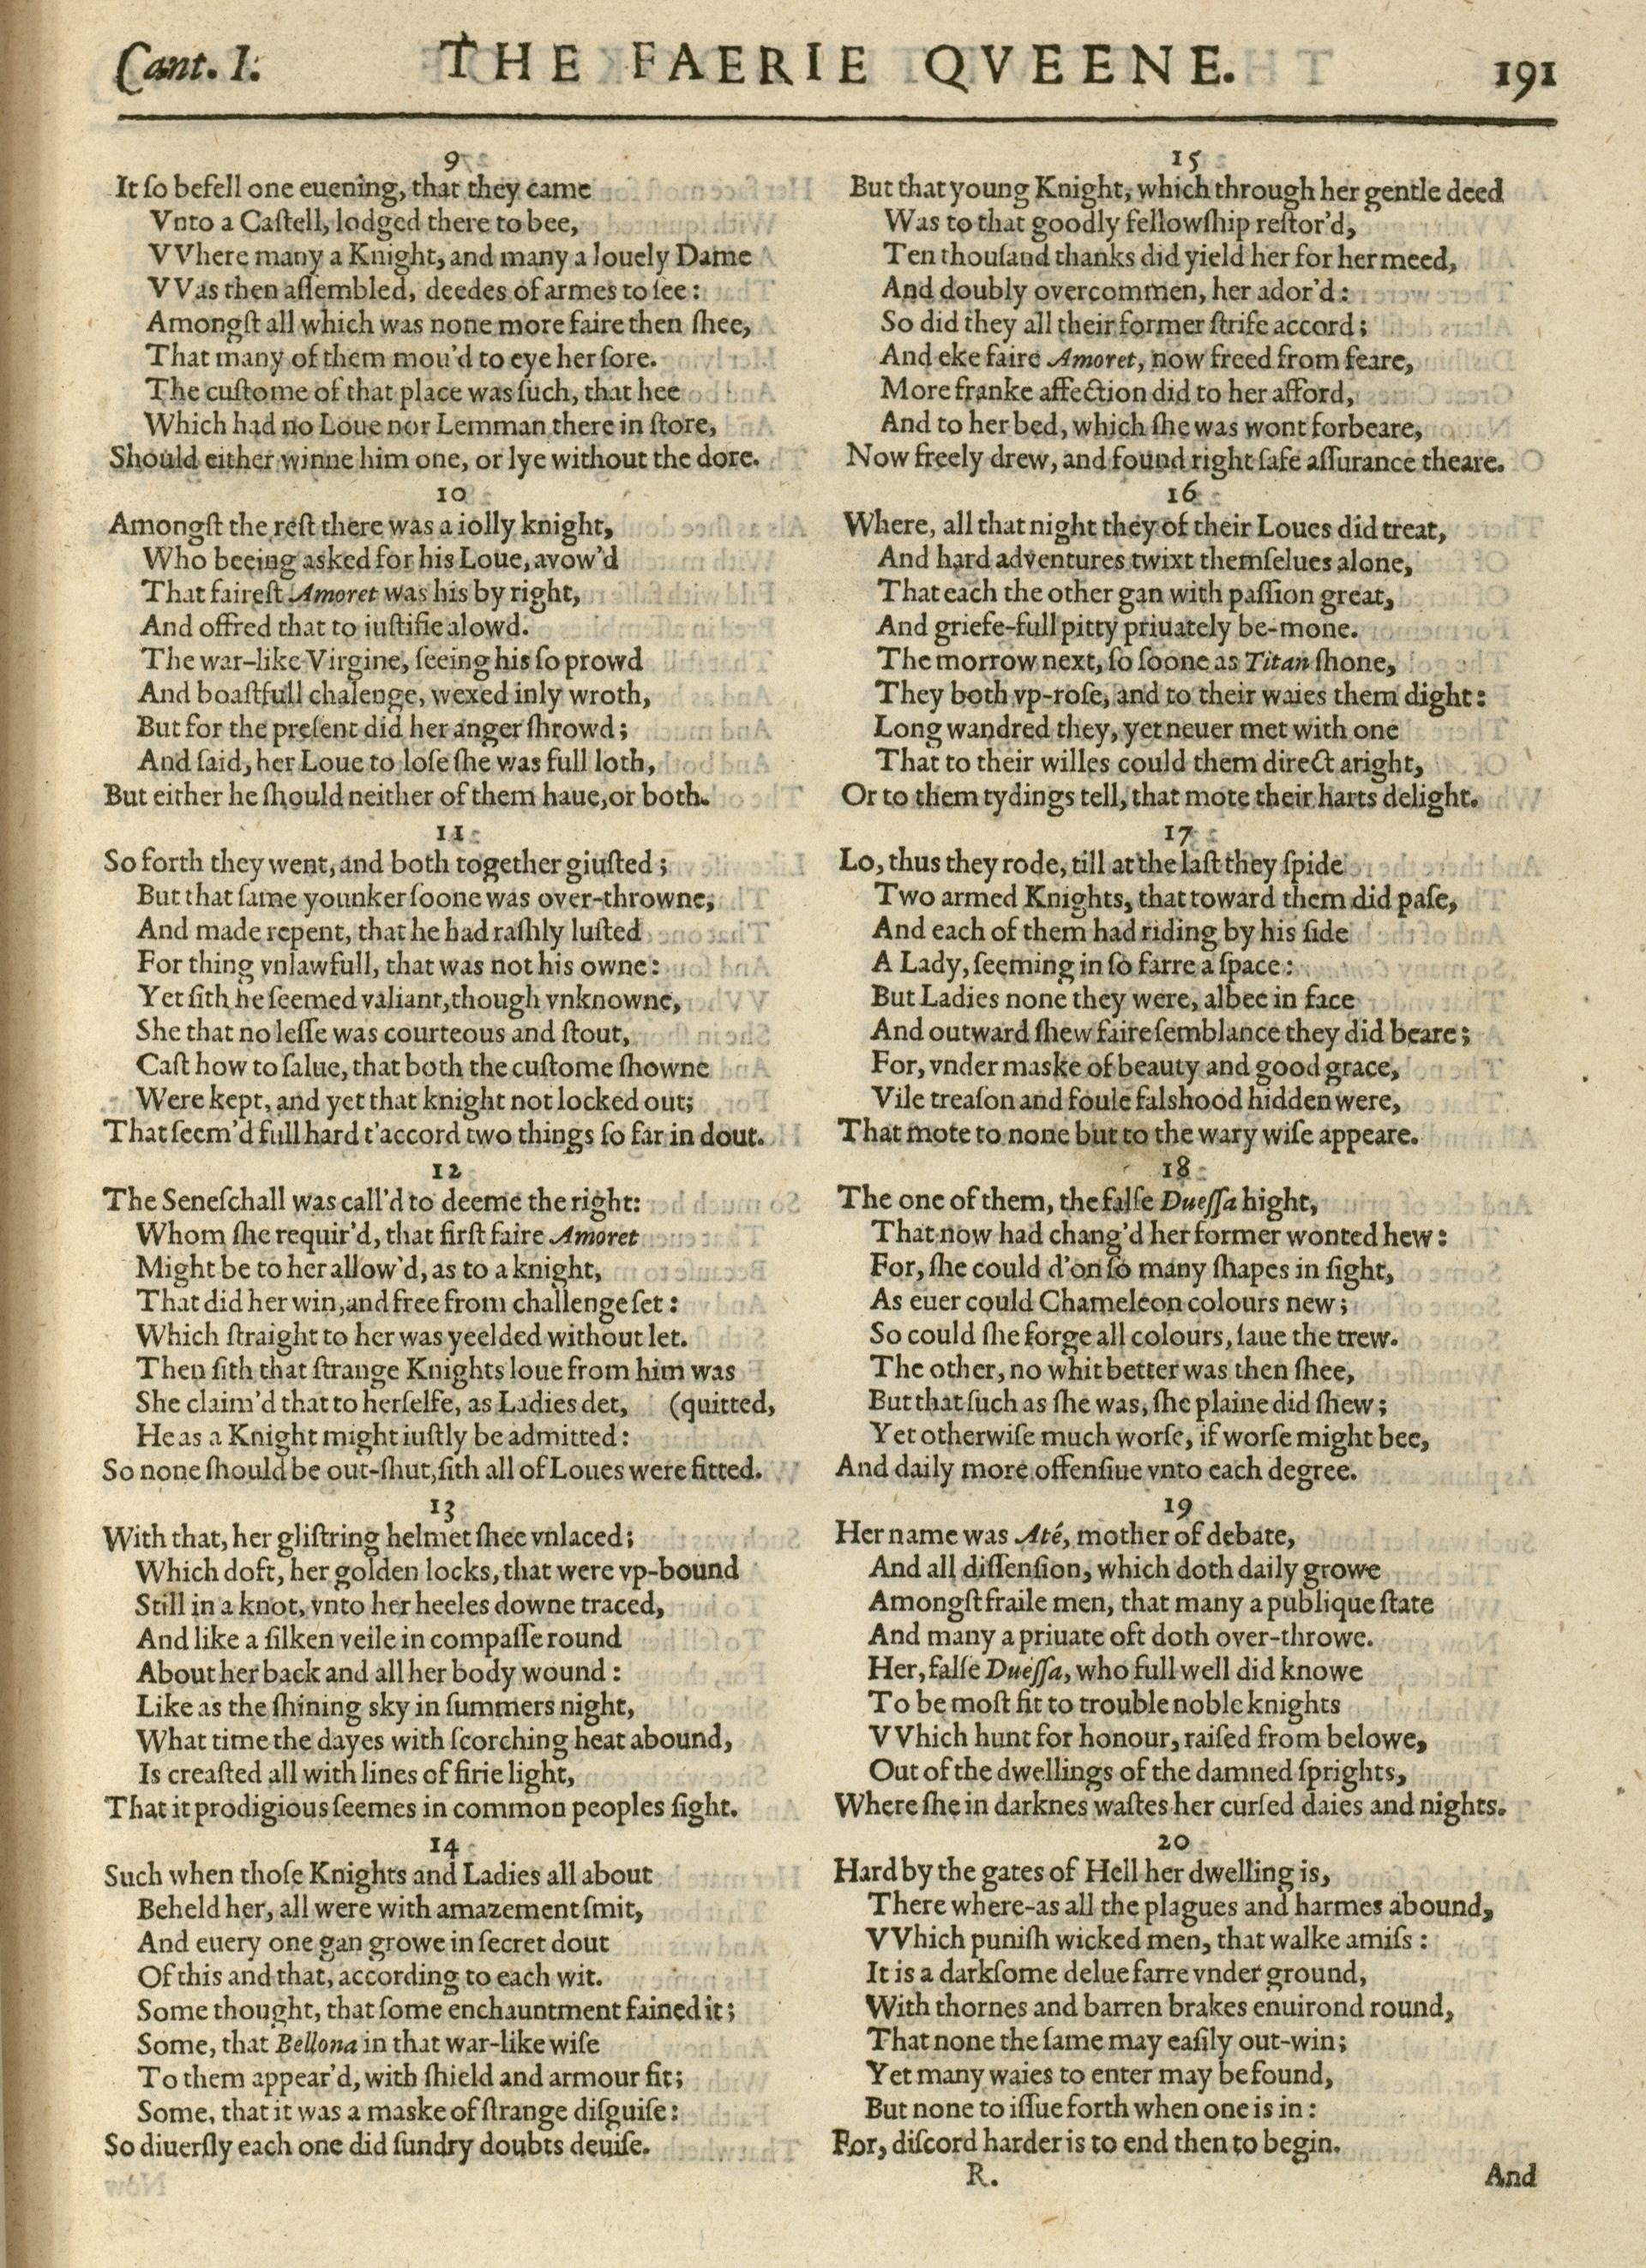 Cant. I. THE FAERIE QVEENE. 191
9
It ſo befell one euening, that they came
Vnto a Caſtell, lodged there to bee,
VVhere many a Knight, and many a louely Dame
VVas then aſſembled, deedes of armes to ſee:
Amongſt all which was none more faire then ſhee,
That many of them mou'd to eye her ſore.
The cuſtome of that place was ſuch, that hee
Which had no Loue nor Lemman there in ſtore,
Should either winne him one, or lye without the dore.
10
Amongſt the reſt there was a iolly knight,
Who beeing asked for his Loue, avow'd
That faireſt Amoret was his by right,
And offred that to iuſtifie alowd.
The war-like Virgine, ſeeing his ſo prowd
And boaſtfull chalenge, wexed inly wroth,
But for the preſent did her anger ſhrowd;
And ſaid, her Loue to loſe ſhe was full loth,
But either he ſhould neither of them haue, or both.
11
So forth they went, and both together giuſted;
But that ſame younker ſoone was over-throwne,
And made repent, that he had raſhly luſted
For thing vnlawfull, that was not his owne:
Yet ſith he ſeemed valiant, though vnknowne,
She that no leſſe was courteous and ſtout,
Caſt how to ſalue, that both the cuſtome ſhowne
Were kept, and yet that knight not locked out;
That ſeem'd full hard t'accord two things ſo far in dout.
12
The Seneſchall was call'd to deeme the right:
Whom ſhe requir'd, that firſt faire Amoret
Might be to her allow'd, as to a knight,
That did her win, and free from challenge ſet:
Which ſtraight to her was yeelded without let.
Then ſith that ſtrange Knights loue from him was
She claim'd that to herſelfe, as Ladies det, (quitted,
He as a Knight might iuſtly be admitted:
So none ſhould be out-ſhut, ſith all of Loues were fitted.
13
With that, her gliſtring helmet ſhee vnlaced;
Which doft, her golden locks, that were vp-bound
Still in a knot, vnto her heeles downe traced,
And like a ſilken veile in compaſſe round
About her back and all her body wound:
Like as the ſhining sky in ſummers night,
What time the dayes with ſcorching heat abound,
Is creaſted all with lines of firie light,
That it prodigious ſeemes in common peoples ſight.
14
Such when thoſe Knights and Ladies all about
Beheld her, all were with amazement ſmit,
And euery one gan growe in ſecret dout
Of this and that, according to each wit.
Some thought, that ſome enchauntment fained it;
Some, that Bellona in that war-like wiſe
To them appear'd, with ſhield and armour fit;
Some, that it was a maske of ſtrange diſguiſe:
So diuerſly each one did ſundry doubts deuiſe.
15
But that young Knight, which through her gentle deed
Was to that goodly fellowſhip reſtor'd,
Ten thouſand thanks did yield her for her meed,
And doubly overcommen, her ador'd:
So did they all their former ſtrife accord;
And eke faire Amoret, now freed from feare,
More franke affection did to her afford,
And to her bed, which ſhe was wont forbeare,
Now freely drew, and found right ſafe aſſurance theare.
16
Where, all that night they of their Loues did treat,
And hard adventures twixt themſelues alone,
That each the other gan with paſſion great,
And griefe-full pitty priuately be-mone.
The morrow next, ſo ſoone as Titan ſhone,
They both vp-roſe, and to their waies them dight:
Long wandred they, yet neuer met with one
That to their willes could them direct aright,
Or to them tydings tell, that mote their harts delight.
17
Lo, thus they rode, till at the laſt they ſpide
Two armed Knights, that toward them did paſe,
And each of them had riding by his ſide
A Lady, ſeeming in ſo farre a ſpace:
But Ladies none they were, albee in face
And outward ſhew faire ſemblance they did beare;
For, vnder maske of beauty and good grace,
Vile treaſon and foule falshood hidden were,
That mote to none but to the wary wiſe appeare.
18
The one of them, the falſe Dueſſa hight,
That now had chang'd her former wonted hew:
For, ſhe could d'on ſo many ſhapes in ſight,
As euer could Chameleon colours new;
So could ſhe forge all colours, ſaue the trew.
The other, no whit better was then ſhee,
But that ſuch as ſhe was, ſhe plaine did ſhew;
Yet otherwiſe much worſe, if worſe might bee,
And daily more offenſiue vnto each degree.
19
Her name was Até, mother of debate,
And all diſſenſion, which doth daily growe
Amongſt fraile men, that many a publique ſtate
And many a priuate oft doth over-throwe.
Her, falſe Dueſſa, who full well did knowe
To be moſt fit to trouble noble knights
VVhich hunt for honour, raiſed from belowe,
Out of the dwellings of the damned ſprights,
Where ſhe in darknes waſtes her curſed daies and nights.
20
Hard by the gates of Hell her dwelling is,
There where-as all the plagues and harmes abound,
VVhich puniſh wicked men, that walke amiſs:
It is a darkſome delue farre vnder ground,
With thornes and barren brakes enuirond round,
That none the ſame may eaſily out-win;
Yet many waies to enter may be found,
But none to iſſue forth when one is in:
For, diſcord harder is to end then to begin.
R. And